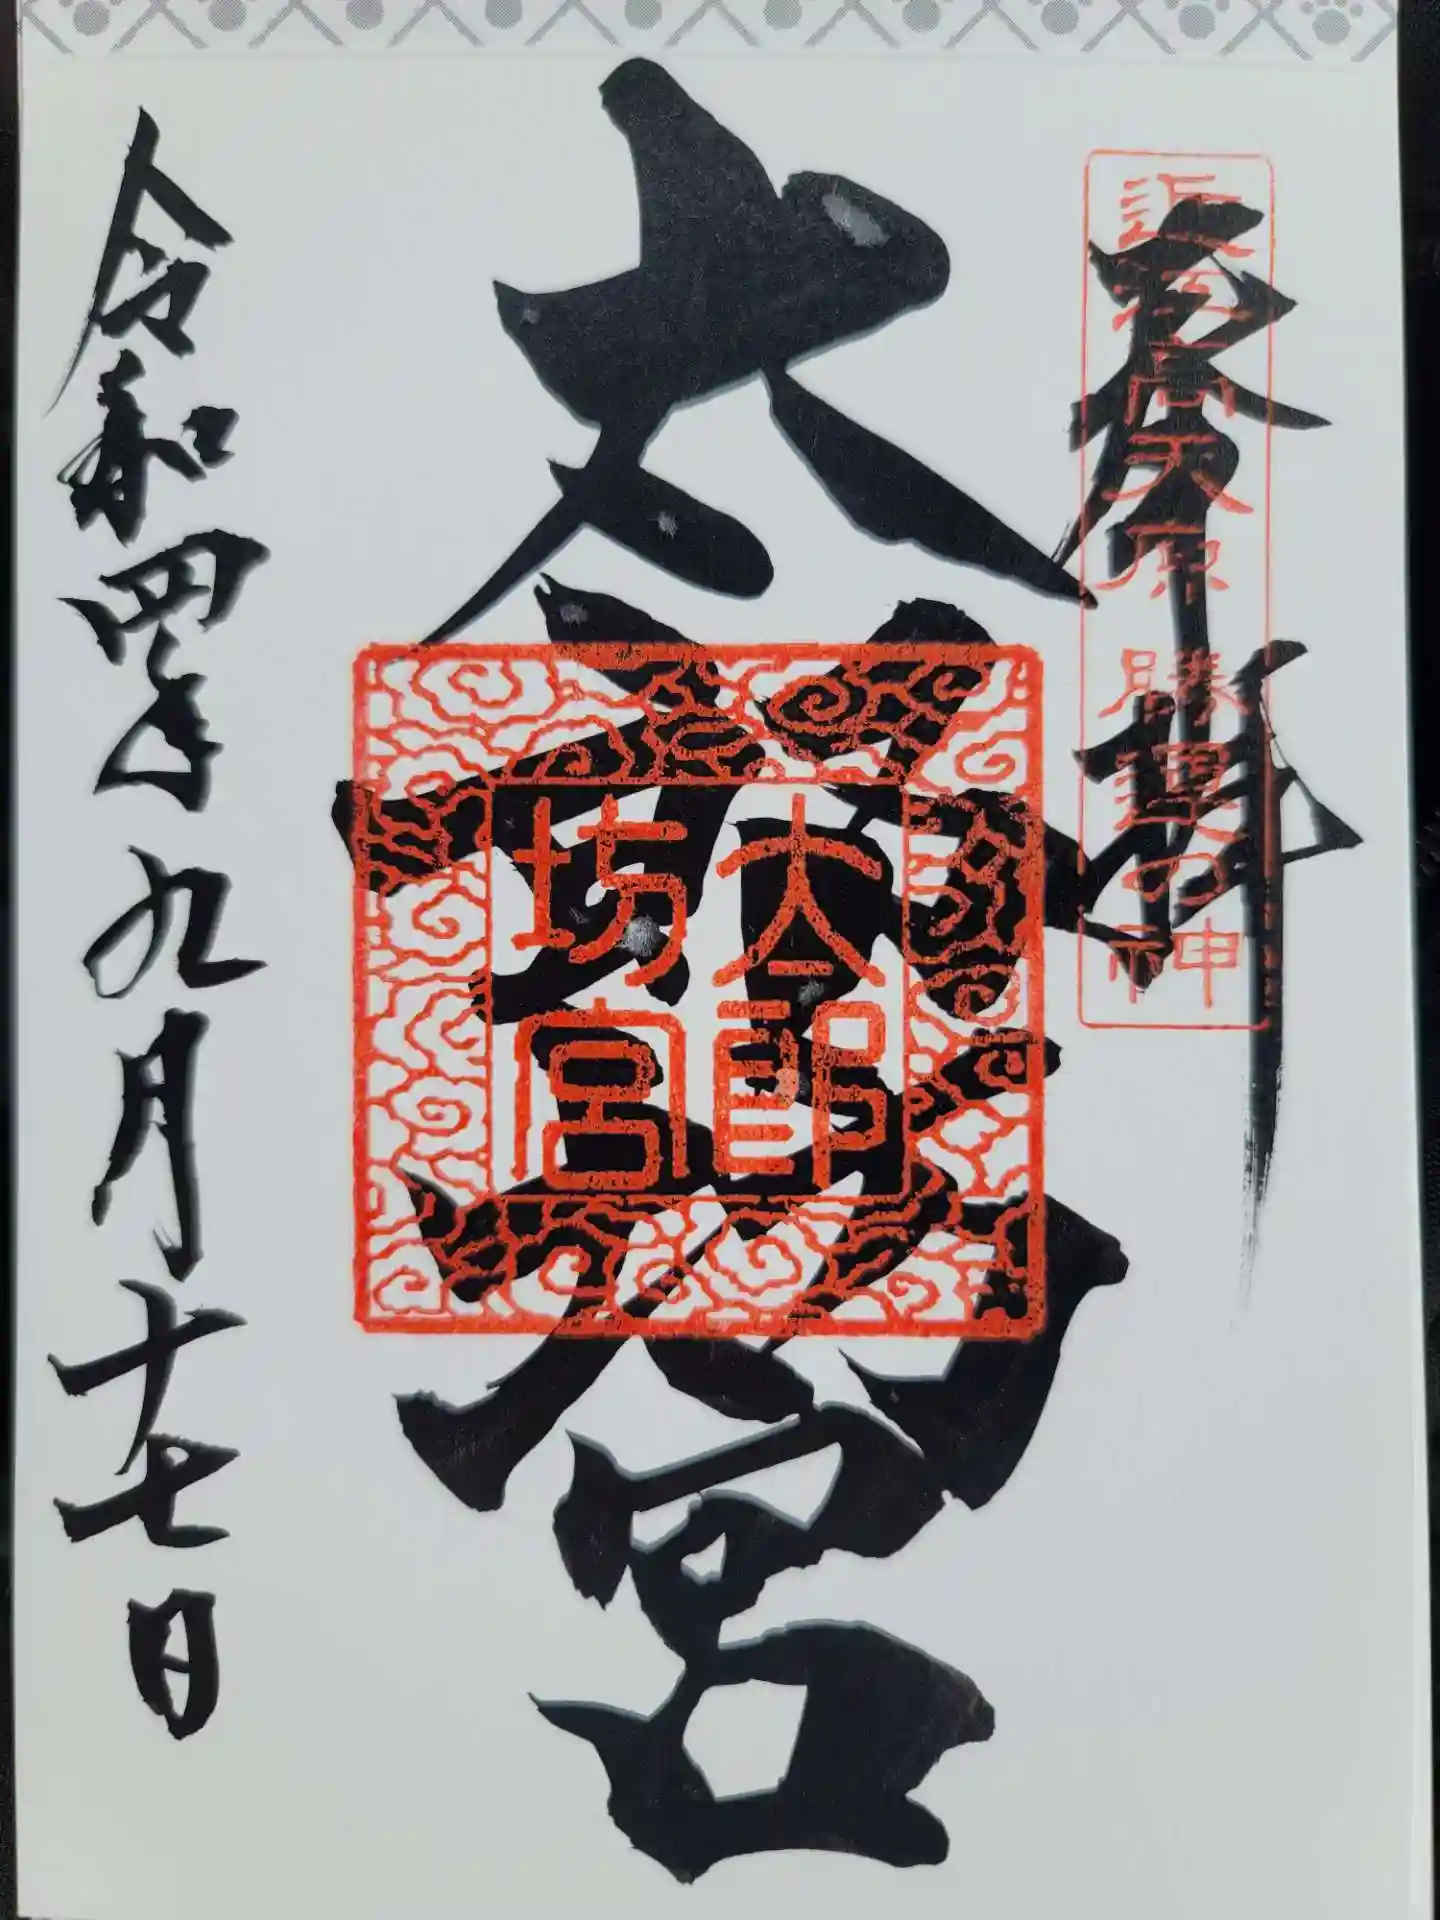 奉拝
近江高天原 勝運の神
太郎坊宮
太郎
坊宮
令和四年九月十七日